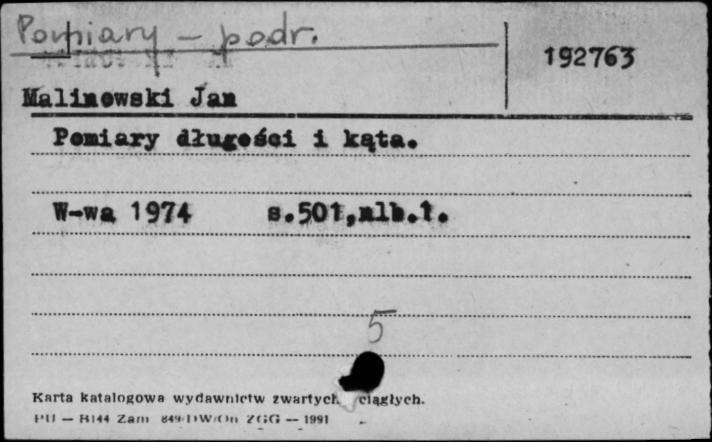 Pomiary – podr.
192763
Malinowski Jan
Pomiary długości i kąta.
W-wa 1974 s.501,nlb.1.
5
Karta katalogowa wydawnictw zwartych ciągłych.
PU — H144 Zam 849/DW/On ZGG — 1991